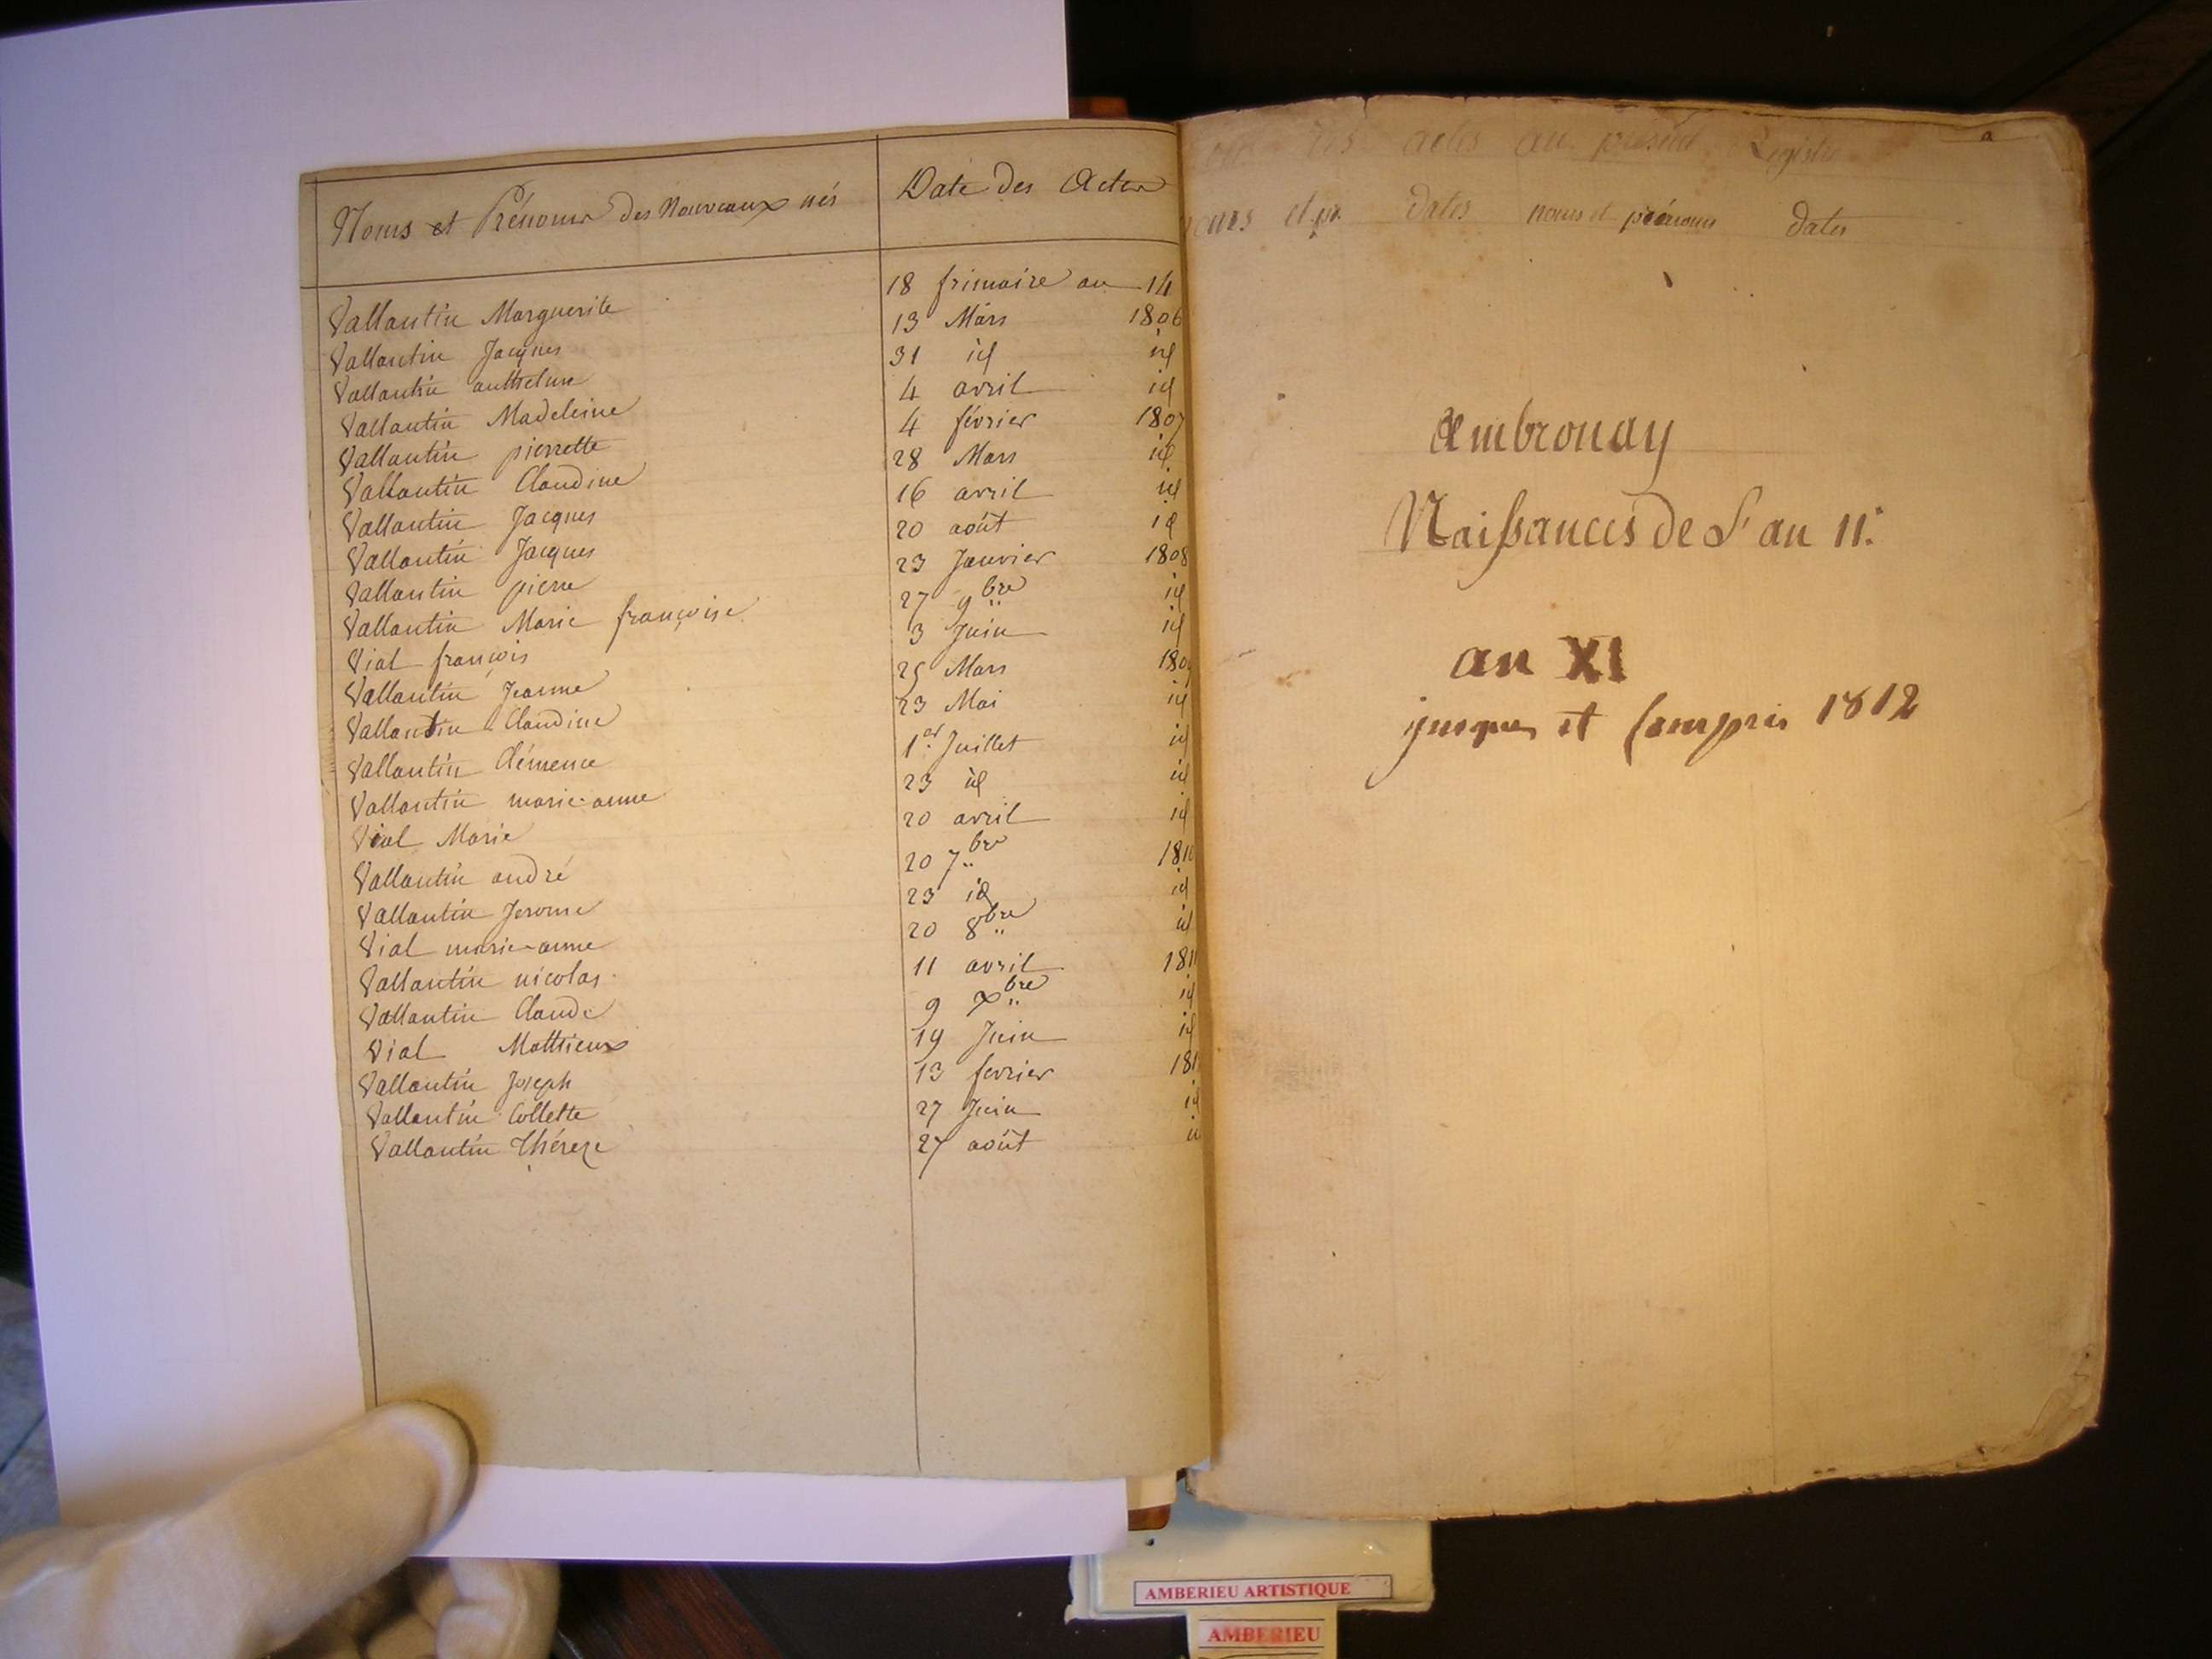 Noms et Prénoms des Nouveaux nés Date des Actes
Vallantin Marguerite 18 frimaire an 14
Vallantin Jacques 13 Mars 1806
Vallantin anthelme 31 id id
Vallantin Madeleine 4 avril id
Vallantin pierrette 4 février 1807
Vallantin Claudine 28 Mars id
Vallantin Jacques 16 avril id
Vallantin Jacques 20 août id
Vallantin pierre 23 Janvier 1808
Vallantin Marie françoise 27 9bre id
Vial françois 3 Juin id
Vallantin Jeanne 25 Mars 1809
Vallantin Claudine 23 Mai id
Vallantin Clémence 1er Juillet id
Vallantin marie-anne 23 id id
Vial Marie 20 avril id
Vallantin andré 20 7bre 1810
Vallantin Jerome 23 id id
Vial marie-anne 20 8bre id
Vallantin nicolas 11 avril 1811
Vallantin Claude 9 xbre id
Vial Matthieux 19 Juin id
Vallantin Joseph 13 fevrier 181
Vallantin Collette 27 Juin id
Vallantin Thérèze 27 août
actes au présent Registre
dates noms et prénoms dates
Ambronay
Naissances de L'an 11.
an XI
jusques et Compris 1812
AMBERIEU ARTISTIQUE
AMBERIEU